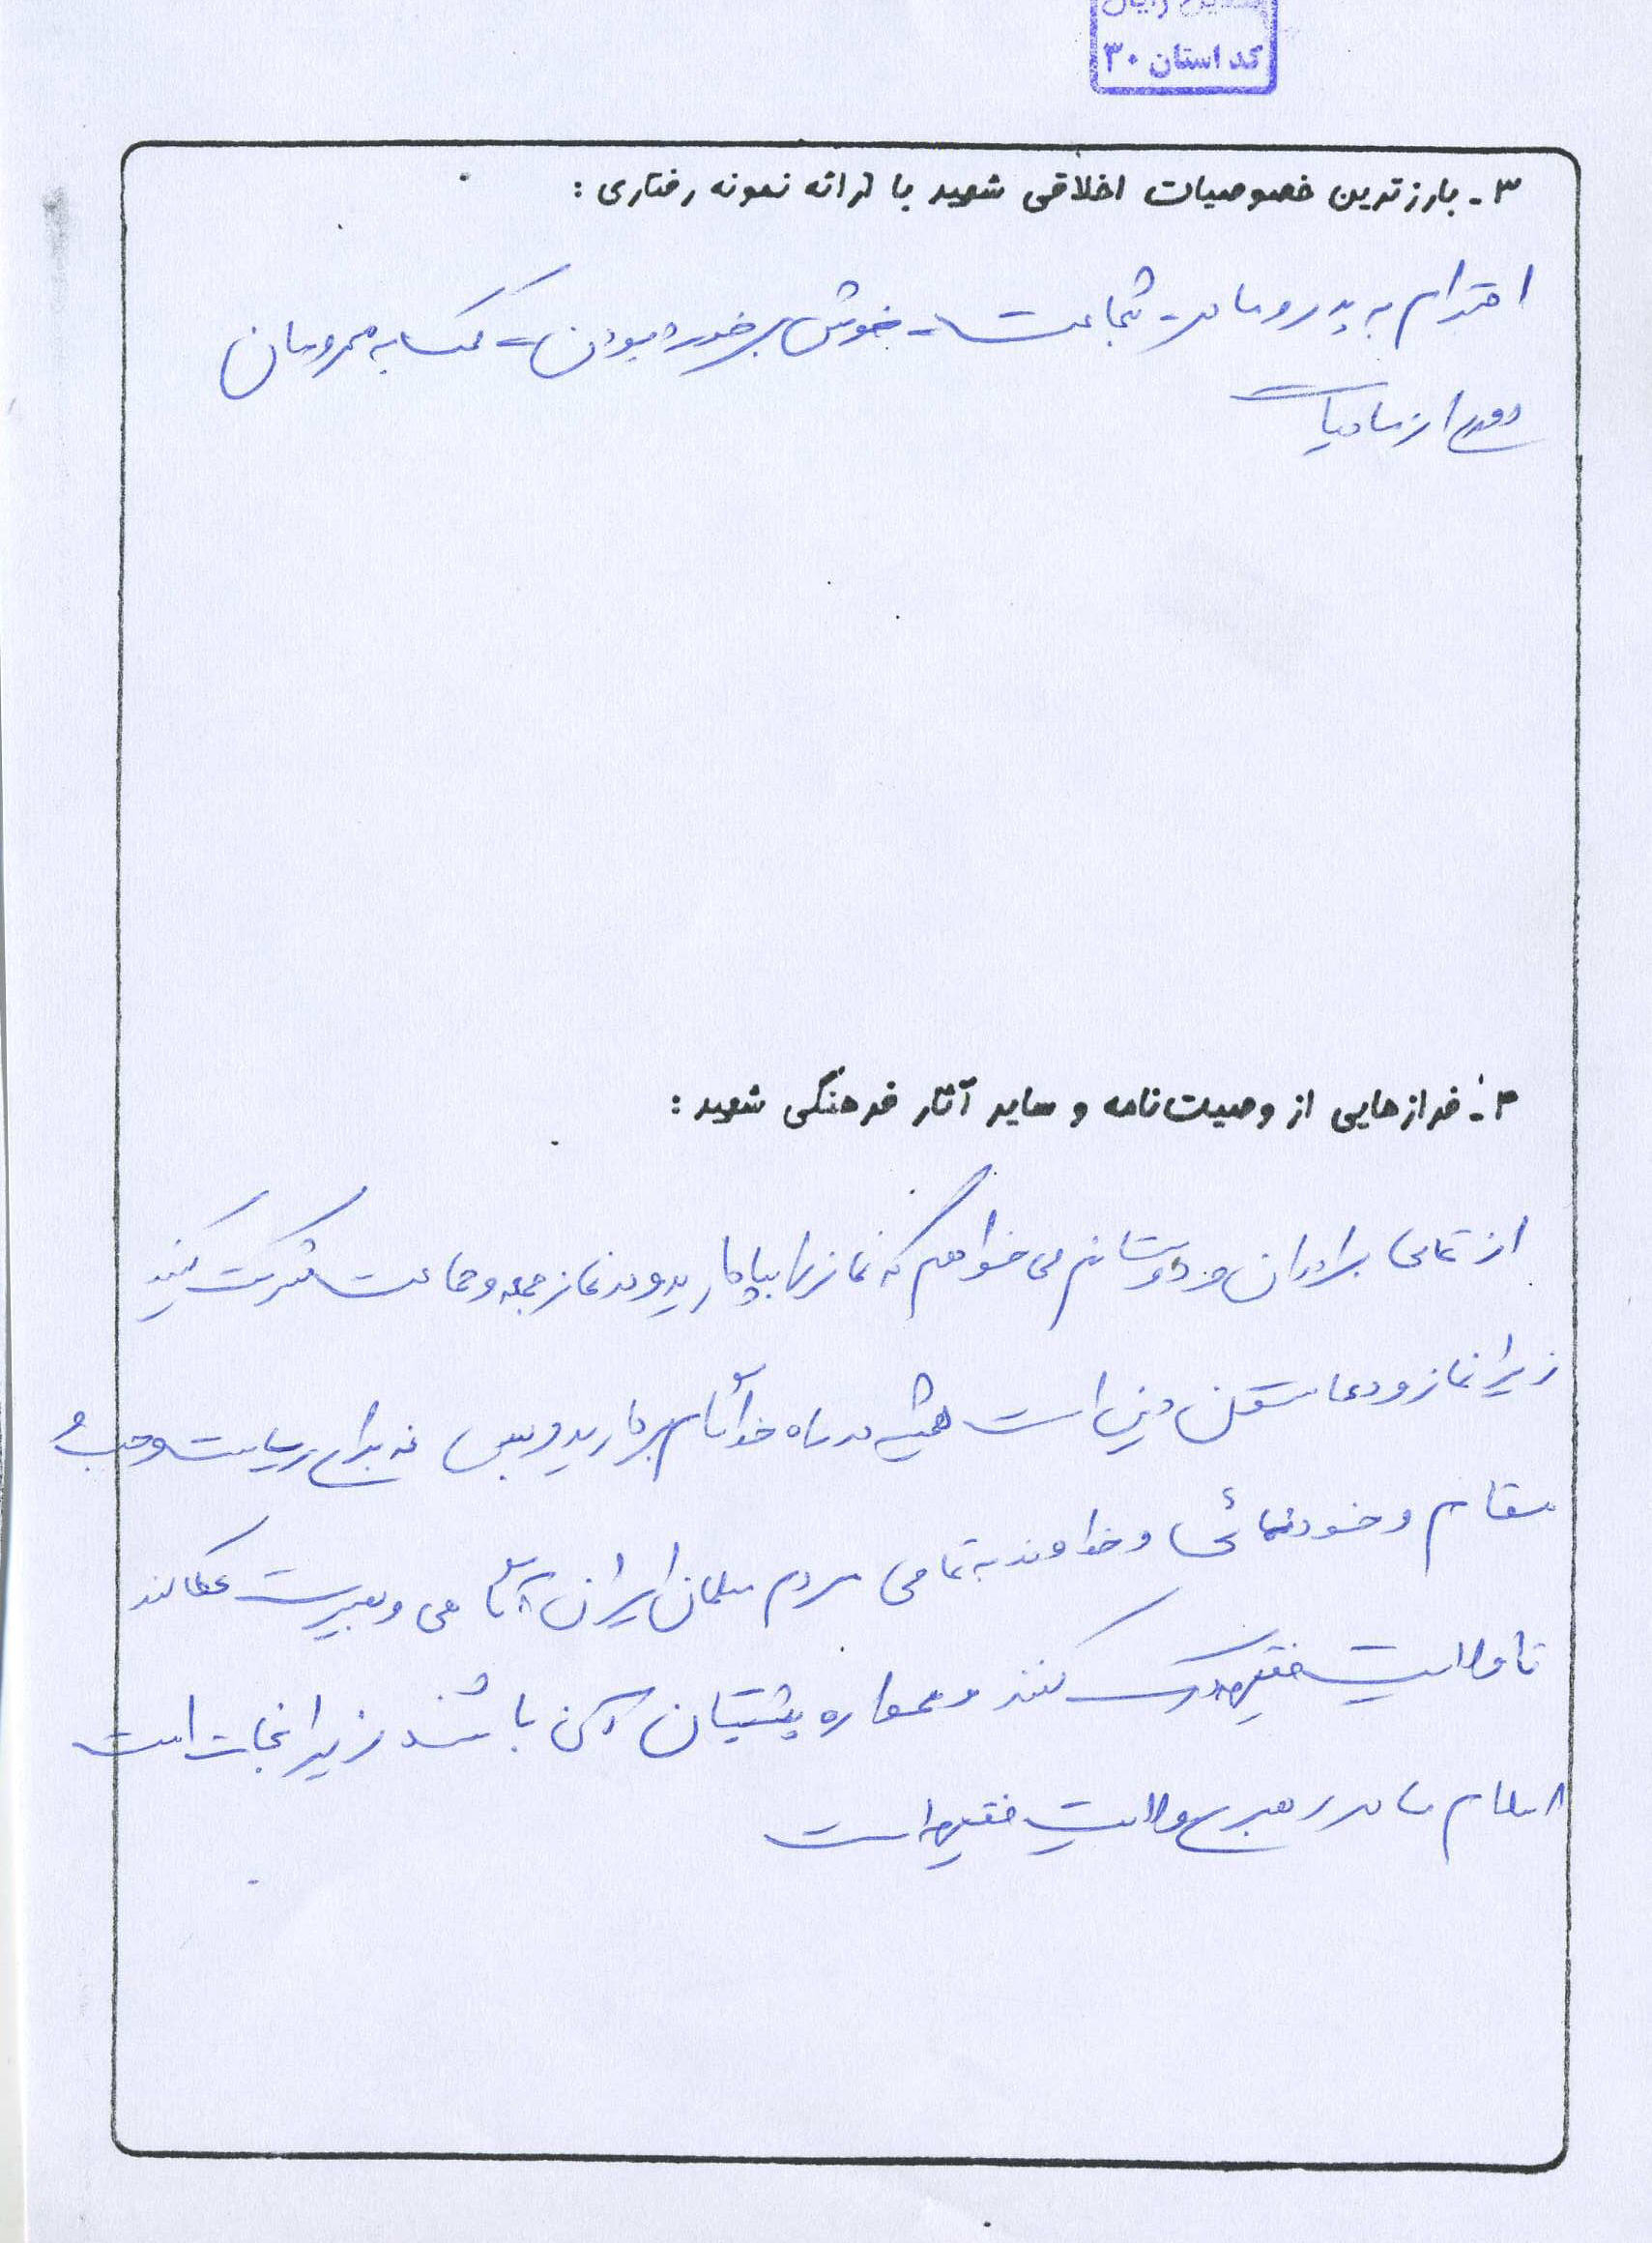 کد استان ۳۰
۳- بارزترین خصوصیات اخلاقی شهید با ارائه نمونه رفتاری :
احترام به پدر و مادر - شجاعت - خوش برخورد بودن - کمک به محرومان
دوری از مادیات
۴- فرازهایی از وصیت‌نامه و سایر آثار فرهنگی شهید :
از تمامی برادران و دوستانم می خواهم که نماز را بپا دارید و در نماز جمعه و جماعت شرکت کنید
زیرا نماز و دعا ستون دین است همیشه در راه خدا گام بردارید و بس نه برای ریاست و حب و
مقام و خودنمائی و خداوند به تمامی مردم مسلمان ایران آگاهی و بصیرت عطا کند
تا ولایت فقیه درک کنند و همواره پشتیبان آن باشند زیرا نجات است
اسلام ما در رهبری ولایت فقیه است